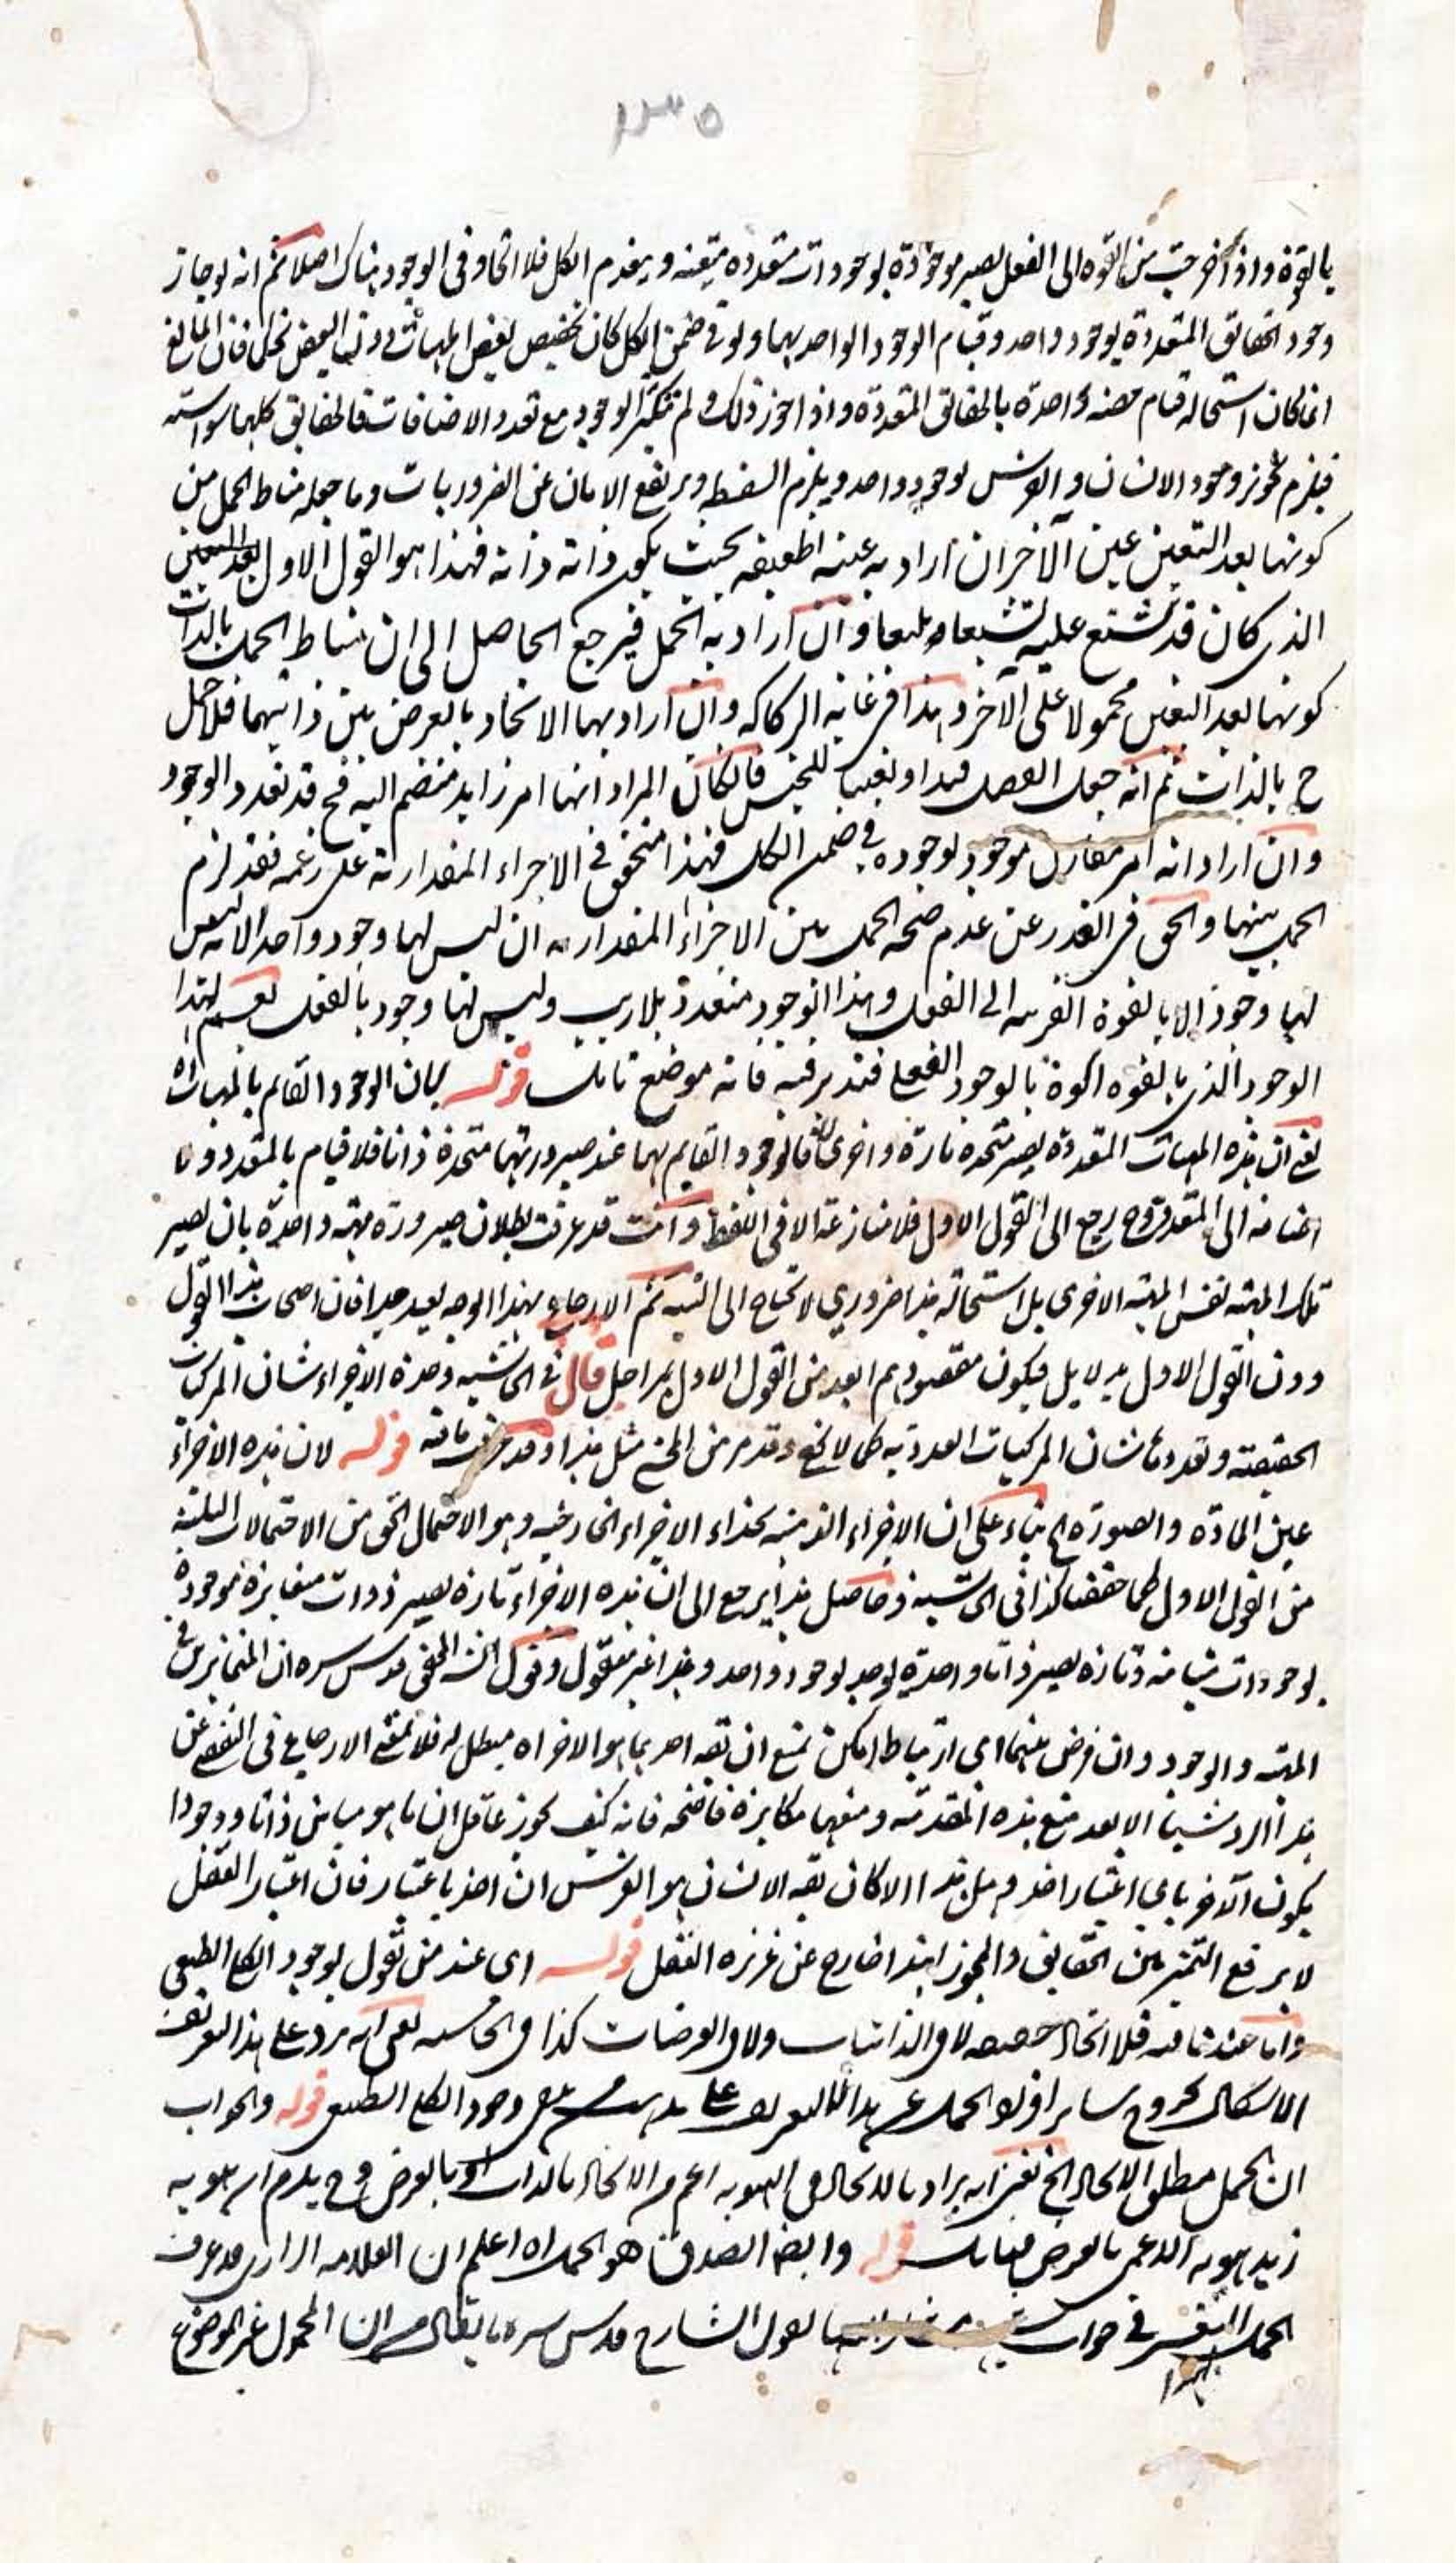 ١٣٥
بالقوة واذا خرجت من القوة الى الفعل يصير موجودة بوجودات متعددة متعينة وينعدم الكل فلا اتحاد فى الوجود هناك اصلا ثم انه لو جاز
وجود الحقائق المتعددة بوجود واحد وقيام الوجود الواحد بهما ولو فى ضمن الكل كان تخصيص بعض المهيات دون البعض تحكما فان المانع
انما كان استحالة قيام حصة واحدة بالحقائق المتعددة واذا جوز ذلك ولم يتكثر الوجود مع تعدد الاضافات فالحقائق كلها سواسية
فيلزم تجويز وجود الانسان والفرس بوجود واحد ويلزم السفسطة ويرتفع الامان عن الضروريات وما جعله مناط الحمل من
كونها بعد التعين عين الآخر ان اراد به عينه الحقيقية بحيث يكون ذاته ذاته فهذا هو القول الاول بعد التعين
الذى كان قد شنع عليه تشنيعا بليغا وان اراد به الحمل فيرجع الحاصل الى ان مناط الحمل بالذات
كونها بعد التعين محمولا على الآخر وهذا فى غاية الركاكة وان اراد بهما الاتحاد بالعرض بين ذاتيهما فلا حمل
ح بالذات ثم انه جعل الفصل قيدا وتعينا للجنس فان كان المراد انها امر زايد منضم اليه فح قد تعدد الوجود
وان اراد انه امر مقارن موجود بوجوده فى ضمن الكل فهذا متحقق فى الاجزاء المقدارية على زعمه فقد لزم
الحمل بينهما والحق فى العذر عن عدم صحة الحمل بين الاجزاء المقدارية ان ليس لها وجود واحد لانه ليس
لها وجود الا بالقوة القريبة الى الفعل وهذا الوجود متعدد بلا ريب وليس لها وجود بالفعل نعم لهذا
الوجود الذى بالقوة اكوة بالوجود الفعلى فتدبر فيه فانه موضع تامل قوله كان الوجود القايم بالمهيات اه
يعنى ان هذه المهيات المتعددة يصير متحدة تارة واخرى لا فالوجود القايم بهما عند صيرورتهما متحدة ذاتا فلا قيام بالمتعدد ولا
اضافة الى المتعدد وح رجع الى القول الاول فلا منازعة الا فى اللفظ وانت قد عرفت بطلان صيرورة مهية واحدة بان يصير
تلك المهية نفس المهية الاخرى بل استحالة هذا ضرورى لا يحتاج الى التنبيه ثم الارجاع بهذا الوجه بعيد جدا فان اصحاب هذا القول
ردوا القول الاول بدلايل فيكون مقصودهم ابعد من القول الاول بمراحل قال فى الحاشية وحدة الاجزاء شان المركبات
الحقيقية وتعددها شان المركبات العددية كما لا يخفى وقد مر من المحشى مثل هذا وقد عرفت ما فيه قوله لان هذه الاجزاء
عين المادة والصورة اه بناء على ان الاجزاء الذهنية بحذاء الاجزاء الخارجية وهو الاحتمال الحق من الاحتمالات الثلثة
من القول الاول كما حققنا كذا فى الحاشية وحاصل هذا يرجع الى ان هذه الاجزاء تارة يصير ذوات متغايرة موجودة
بوجودات متباينة وتارة يصير ذاتا واحدة يوجد بوجود واحد وهذا غير معقول وقول الشه المحقق قدس سره ان المتغايرين فى
المهية والوجود وان فرض بينهما اى ارتباط امكن يمتنع ان يقه احدهما هو الاخر اه مبطل له فلا ينفع الارجاع فى التفصى عن
هذا الرد شيئا الا بعد منع هذه المقدمة ومنعها مكابرة فاضحة فانه كيف يجوز عاقل ان ما هو مباين ذاتا ووجودا
يكون الآخر باى اعتبار اخذ وهل هذا الا كان يقه الانسان هو الفرس ان اخذ باعتبار فان اعتبار العقل
لا يرفع التميز بين الحقايق والمجوز لهذا خارج عن غريزة العقل قوله اى عند من يقول بوجود الكلى الطبعى
واما عند نافيه فلا اتحاد حقيقة لا فى الذاتيات ولا فى العرضيات كذا فى الحاشية يعنى انه يرد على هذا التعريف
الاشكال بخروج ساير افراد الحمل عن هذا التعريف على مذهب من ينفى وجود الكلى الطبعى قوله والجواب
ان الحمل مطلق الاتحاد الخ يعنى انه يراد بالاتحاد فى الهوية اعم من الاتحاد بالذات او بالعرض وح يلزم ان هوية
زيد هوية الاعمى بالعرض فتامل قوله وايضا الصدق هو الحمل اه اعلم ان العلامة الرازى قد عرف
الحمل فى جواب لقول الشارح قدس سره ما يقال من ان المحمول غير الموضوع